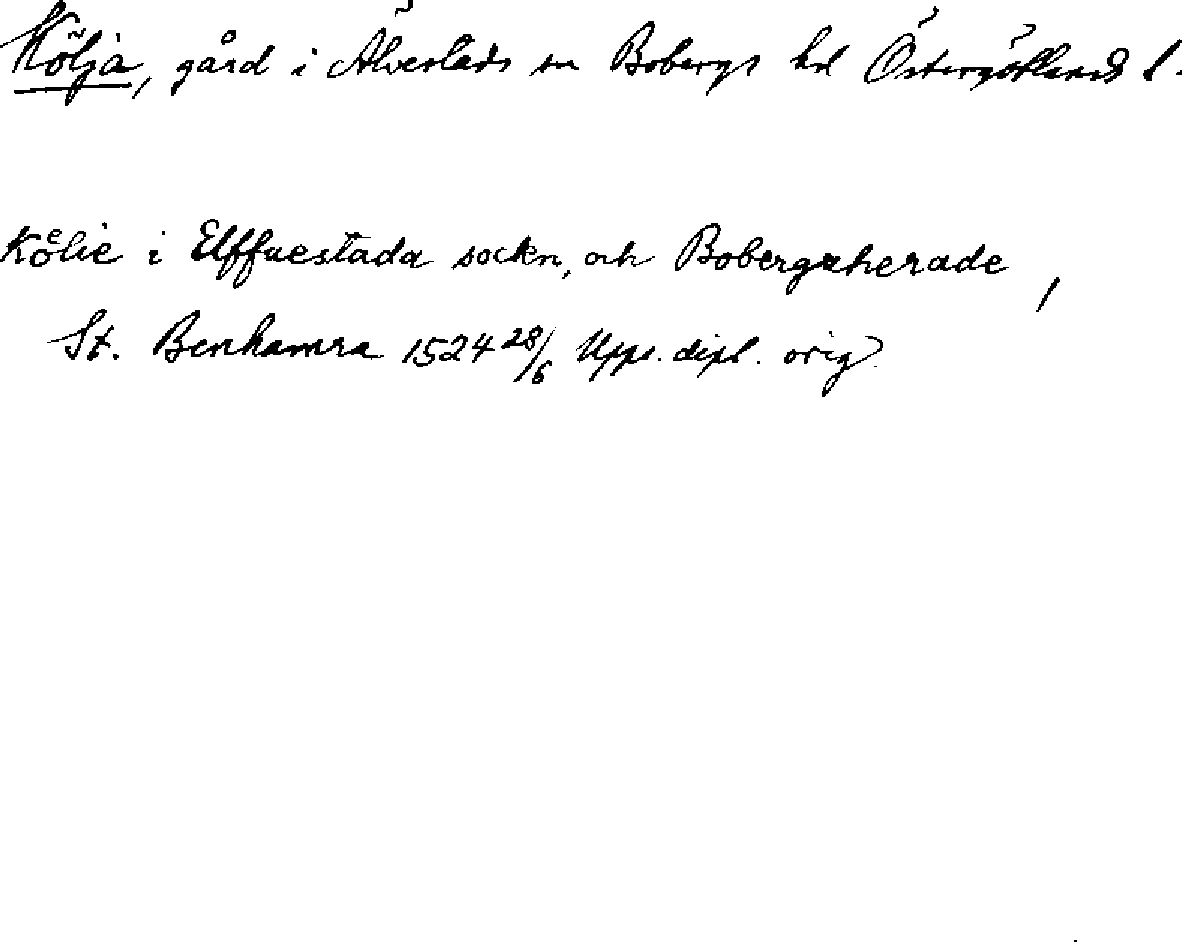 Kölja, gård i Älvestads sn Bobergs hd Östergötlands l.
Koͤlie i Elffuestada sockn, och Bobergxherade,
St. Benhamra 1524 28/6 Upps. dipl. orig.